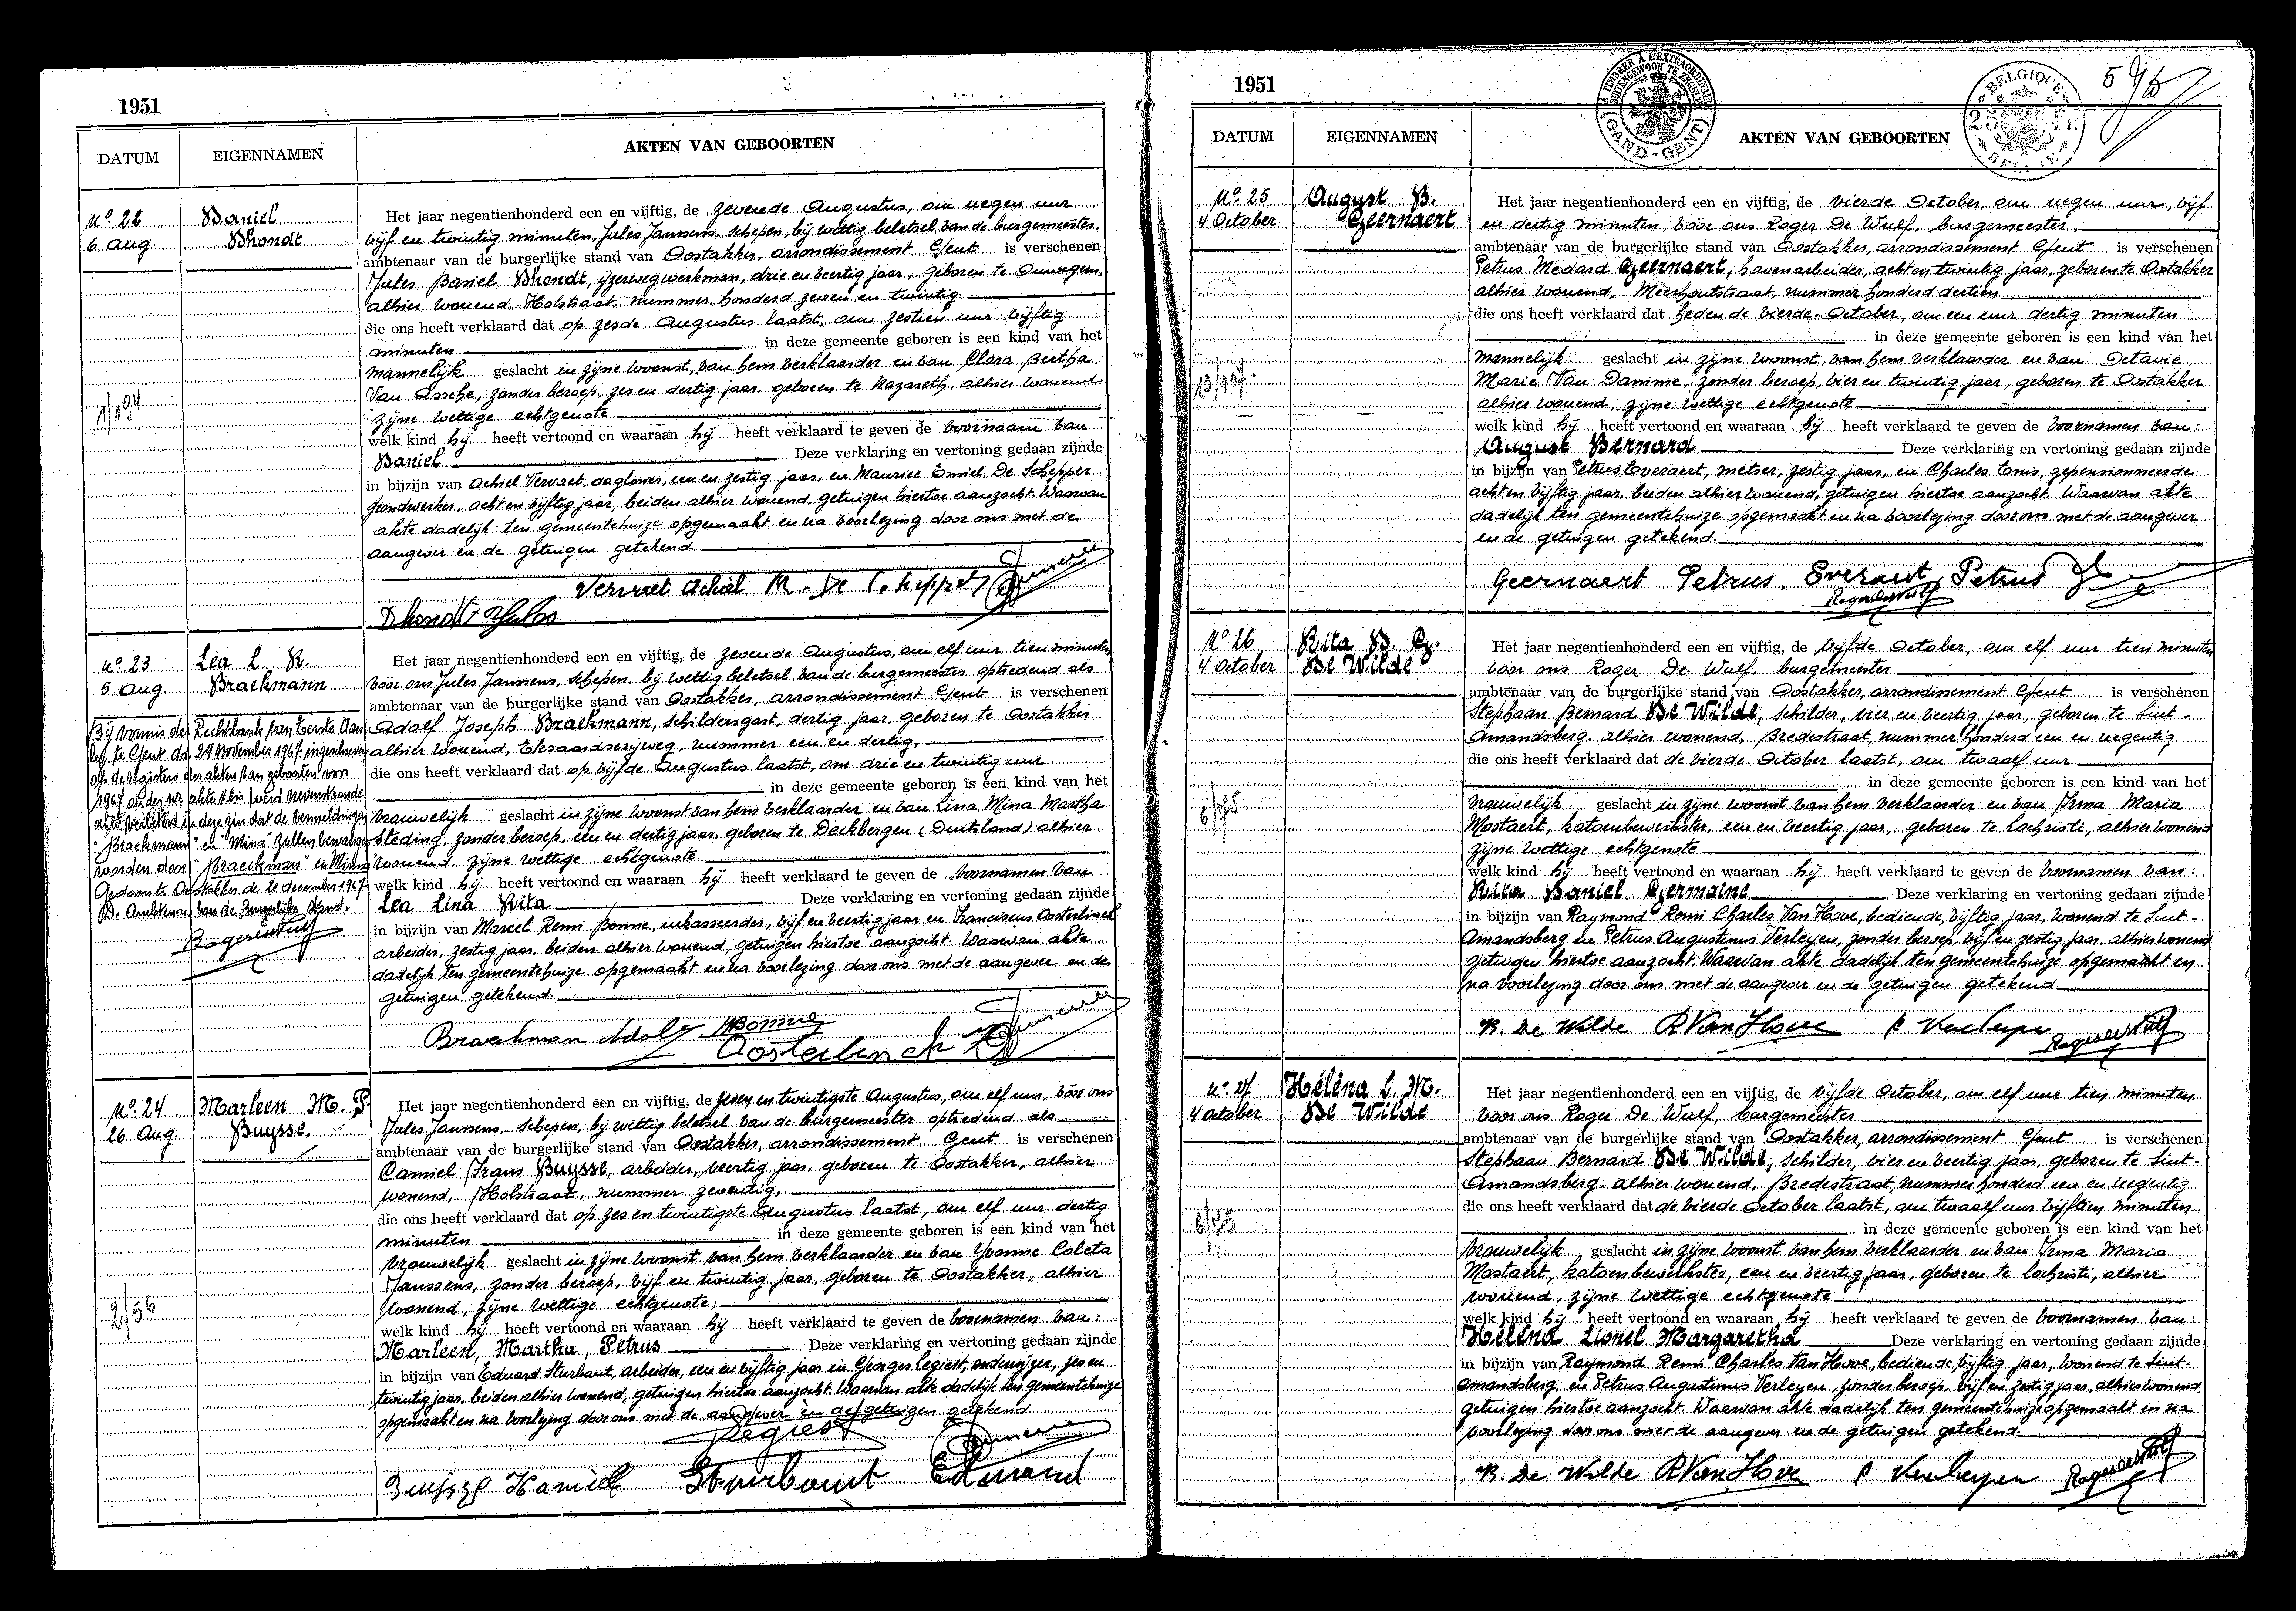 1951
DATUM
EIGENNAMEN
AKTEN VAN GEBOORTEN
No. 22
6 Aug.
Daniel
Dhondt
Het jaar negentienhonderd een en vijftig, de zevende Augustus, om negen uur
vijf en twintig minuten, Jules Janssens, schepen, bij wettig beletsel van de burgemeester,
ambtenaar van de burgerlijke stand van Oostakker, arrondissement Gent is verschenen
Jules Daniel Dhondt, ijzerwegwerkman, drie en veertig jaar, geboren te Ouwegem,
alhier wonend, Holstraat, nummer honderd zeven en twintig
die ons heeft verklaard dat op zesde Augustus laatst, om zestien uur vijftig
minuten in deze gemeente geboren is een kind van het
mannelijk geslacht in zijne woonst, van hem verklaarder en van Clara Bertha
Van Assche, zonder beroep, zes en dertig jaar, geboren te Nazareth, alhier wonend
zijne wettige echtgenote
welk kind hij heeft vertoond en waaraan hij heeft verklaard te geven de voornaam van
Daniel Deze verklaring en vertoning gedaan zijnde
in bijzijn van Achiel Vervaet, dagloner, een en zestig jaar, en Maurice Emiel De Schepper
grondwerker, acht en vijftig jaar, beiden alhier wonend, getuigen hiertoe aanzocht. Waarvan
akte dadelijk ten gemeentehuize opgemaakt en na voorlezing door ons met de
aangever en de getuigen getekend.
Vervaet Achiel M. De Schepper
Dhondt Jules
No. 23
5 Aug.
Lea L. R.
Braekmann
Het jaar negentienhonderd een en vijftig, de zevende Augustus, om elf uur tien minuten
voor ons Jules Janssens, schepen, bij wettig beletsel van de burgemeester optredend als
ambtenaar van de burgerlijke stand van Oostakker, arrondissement Gent is verschenen
Adolf Joseph Braekmann, schildersgast, dertig jaar, geboren te Oostakker
alhier wonend, Eksaardserijweg, nummer een en dertig,
die ons heeft verklaard dat op vijfde Augustus laatst, om drie en twintig uur
in deze gemeente geboren is een kind van het
vrouwelijk geslacht in zijne woonst van hem verklaarder en van Lina Mina Martha
Steding, zonder beroep, een en dertig jaar, geboren te Deckbergen (Duitsland) alhier
wonend zijne wettige echtgenote
welk kind hij heeft vertoond en waaraan hij heeft verklaard te geven de voornamen van
Lea Lina Rita Deze verklaring en vertoning gedaan zijnde
in bijzijn van Marcel Remi Bonne, inkasseerder, vijf en veertig jaar en Franciscus Oosterlinck
arbeider, zestig jaar, beiden alhier wonend, getuigen hiertoe aanzocht. Waarvan akte
dadelijk ten gemeentehuize opgemaakt en na voorlezing door ons met de aangever en de
getuigen getekend.
Bij vonnis der Rechtbank van Eerste Aan
leg te Gent dd. 29 November 1967 ingeschreven
op de registers der akten van geboorten van
1967 onder nr. akte 11 bis werd nevenstaande
akte verbeterd in deze zin dat de vermeldingen
"Braekmann" en "Mina" zullen vervangen
worden door "Braeckman" en Minna
Gedaan te Oostakker de 21 december 1967
De Ambtenaar van de Burgerlijke Stand.
Roger De Wulf
Braekman Adolf MBonne
Oosterlinck
No. 24
26 Aug.
Marleen M. P.
Buysse.
Het jaar negentienhonderd een en vijftig, de zeven en twintigste Augustus, om elf uur, voor ons
Jules Janssens, schepen, bij wettig beletsel van de burgemeester optredend als
ambtenaar van de burgerlijke stand van Oostakker, arrondissement Gent is verschenen
Camiel Frans Buysse, arbeider, veertig jaar, geboren te Oostakker, alhier
wonend, Holstraat, nummer zeventig,
die ons heeft verklaard dat op zes en twintigste Augustus laatst, om elf uur dertig
minuten in deze gemeente geboren is een kind van het
vrouwelijk geslacht in zijne woonst van hem verklaarder en van Yvonne Coleta
Janssens, zonder beroep, vijf en twintig jaar, geboren te Oostakker, alhier
wonend, zijne wettige echtgenote;
2/56
welk kind hij heeft vertoond en waaraan hij heeft verklaard te geven de voornamen van:
Marleen, Martha, Petrus Deze verklaring en vertoning gedaan zijnde
in bijzijn van Eduard Sturbaut, arbeider, een en vijftig jaar en Georges Legiest, onderwijzer, zes en
twintig jaar, beiden alhier wonend, getuigen hiertoe aanzocht. Waarvan akte dadelijk ten gemeentehuize
opgemaakt en na voorlezing door ons met de aangever en de getuigen getekend.
Legiest
Buijsse Kamiel Sturbaut Edmond
1951
A TIMBRER A L'EXTRAORDINAIRE
BUITENGEWOON TE ZEGELEN
(GAND-GENT)
BELGIQUE
BELGIE
DATUM
EIGENNAMEN
AKTEN VAN GEBOORTEN
No. 25
4 October
August B.
Geernaert
Het jaar negentienhonderd een en vijftig, de vierde October, om negen uur, vijf
en dertig minuten, voor ons Roger De Wulf, burgemeester.
ambtenaar van de burgerlijke stand van Oostakker, arrondissement Gent is verschenen
Petrus Medard Geernaert, havenarbeider, acht en twintig jaar, geboren te Oostakker
alhier wonend, Meerhoutstraat, nummer honderd dertien
die ons heeft verklaard dat heden de vierde October, om een uur dertig minuten
in deze gemeente geboren is een kind van het
mannelijk geslacht in zijne woonst, van hem verklaarder en van Octavie
Marie Van Damme, zonder beroep, vier en twintig jaar, geboren te Oostakker
alhier wonend, zijne wettige echtgenote
welk kind hij heeft vertoond en waaraan hij heeft verklaard te geven de voornamen van:
August Bernard Deze verklaring en vertoning gedaan zijnde
in bijzijn van Petrus Everaert, metser, zestig jaar, en Charles Tonis, gepensionneerde
acht en vijftig jaar, beiden alhier wonend, getuigen hiertoe aanzocht. Waarvan akte
dadelijk ten gemeentehuize opgemaakt en na voorlezing door ons met de aangever
en de getuigen getekend.
Geernaert Petrus. Everaert Petrus
Roger De Wulf
No. 26
4 October
Rita D. G.
De Wilde
Het jaar negentienhonderd een en vijftig, de vijfde October, om elf uur tien minuten
voor ons Roger De Wulf, burgemeester
ambtenaar van de burgerlijke stand van Oostakker, arrondissement Gent is verschenen
Stephaan Bernard De Wilde, schilder, vier en veertig jaar, geboren te Sint-
Amandsberg alhier wonend, Bredestraat, nummer honderd een en negentig
die ons heeft verklaard dat de vierde October laatst, om twaalf uur
in deze gemeente geboren is een kind van het
vrouwelijk geslacht in zijne woonst van hem verklaarder en van Irma Maria
Mostaert, katoenbewerkster, een en veertig jaar, geboren te Lochristi, alhier wonend
zijne wettige echtgenote
welk kind hij heeft vertoond en waaraan hij heeft verklaard te geven de voornamen van:
Rita Daniel Germaine Deze verklaring en vertoning gedaan zijnde
in bijzijn van Raymond Remi Charles Van Hove, bediende, vijftig jaar, wonend te Sint-
Amandsberg en Petrus Augustinus Verleyen, zonder beroep, vijf en zestig jaar, alhier wonend
getuigen hiertoe aanzocht. Waarvan akte dadelijk ten gemeentehuize opgemaakt en
na voorlezing door ons met de aangever en de getuigen getekend
B. De Wilde R Van Hove P Verleyen Roger De Wulf
No. 27
4 October
Héléna L. M.
De Wilde
Het jaar negentienhonderd een en vijftig, de vijfde October, om elf uur tien minuten
voor ons Roger De Wulf, burgemeester
ambtenaar van de burgerlijke stand van Oostakker, arrondissement Gent is verschenen
Stephaan Bernard De Wilde, schilder, vier en veertig jaar, geboren te Sint-
Amandsberg. alhier wonend, Bredestraat, nummer honderd een en negentig
die ons heeft verklaard dat de vierde October laatst, om twaalf uur vijftien minuten
in deze gemeente geboren is een kind van het
vrouwelijk geslacht in zijne woonst van hem verklaarder en van Irma Maria
Mostaert, katoenbewerkster, een en veertig jaar, geboren te Lochristi, alhier
wonend, zijne wettige echtgenote
welk kind hij heeft vertoond en waaraan hij heeft verklaard te geven de voornamen van:
Héléna Lionel Margaretha Deze verklaring en vertoning gedaan zijnde
in bijzijn van Raymond Remi Charles Van Hove, bediende, vijftig jaar, wonend te Sint-
Amandsberg, en Petrus Augustinus Verleyen, zonder beroep, vijf en zestig jaar, alhier wonend,
getuigen hiertoe aanzocht. Waarvan akte dadelijk ten gemeentehuize opgemaakt en na
voorlezing door ons met de aangever en de getuigen getekend.
B. De Wilde R Van Hove P Verleyen Roger De Wulf